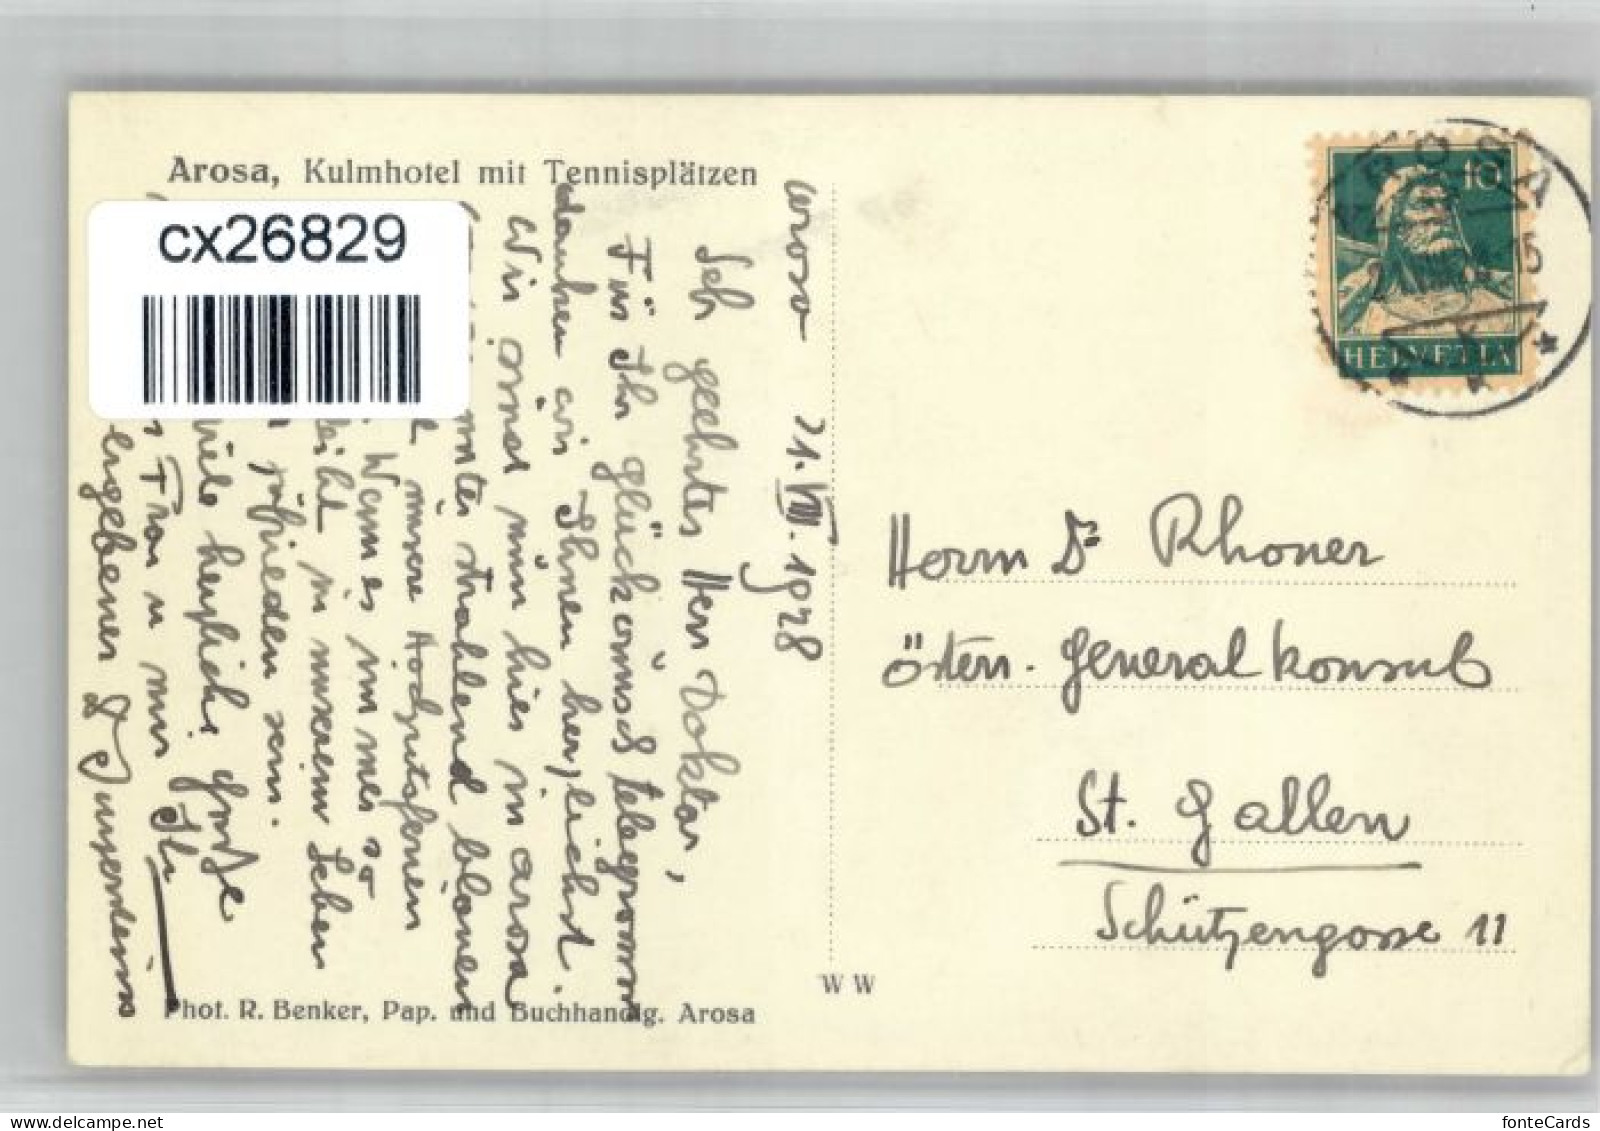 Arosa, Kulmhotel mit Tennisplätzen
cx26829
Arosa 21.VIII.1928
Sehr geehrter Herr Doktor,
Für Ihr glückwunsch telegramm
danken wir Ihnen herzlichst.
Wir sind nun hier in Arosa
strahlend blauen
unsere Hochzeitsferien
Wenn es immer so
in unserem Leben
zufrieden sein.
viele herzliche Grüsse
Frau u. von Ihr
ergebener
Phot. R. Benker, Pap. und Buchhandlg. Arosa
WW
AROSA
10
HELVETIA
Herrn Dr Rhoner
Österr. Generalkonsul
St. Gallen
Schützengasse 11
fonteCards